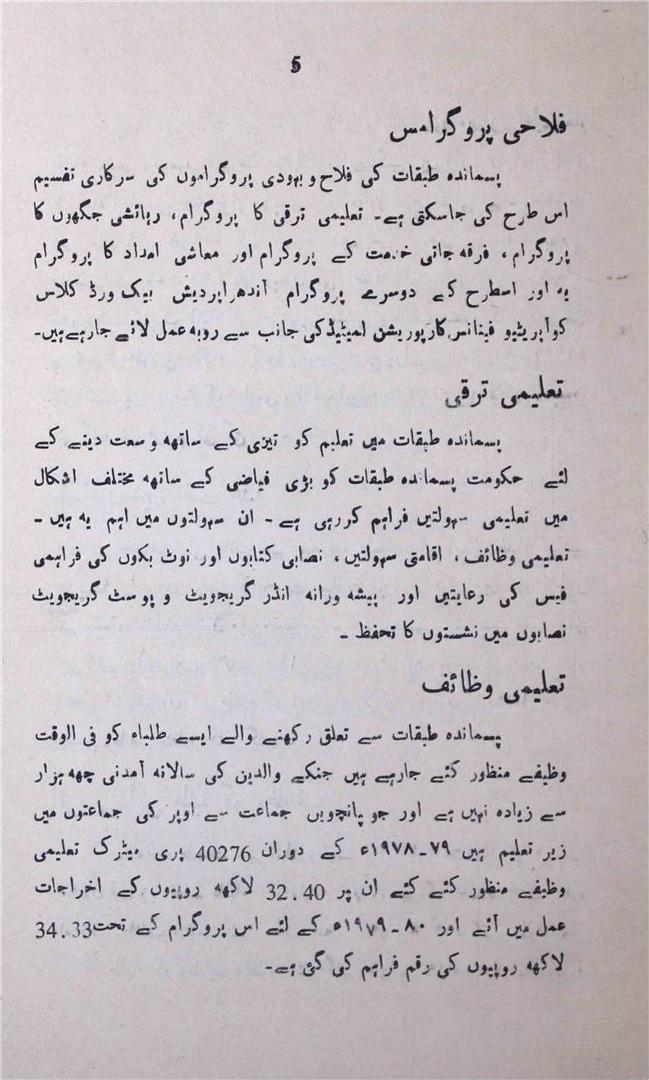 5
فلاحی پروگرامس
پسماندہ طبقات کی فلاح و بہودی پروگراموں کی سرکاری تقسیم
اس طرح کی جاسکتی ہے۔ تعلیمی ترقی کا پروگرام، رہائشی جگھوں کا
پروگرام، فرقہ جاتی خدمت کے پروگرام اور معاشی امداد کا پروگرام
یہ اور اسطرح کے دوسرے پروگرام آندھراپردیش بیک ورڈ کلاس
کوآپریٹیو فینانس کارپوریشن لمیٹیڈ کی جانب سے روبہ عمل لائے جارہے ہیں۔
تعلیمی ترقی
پسماندہ طبقات میں تعلیم کو تیزی کے ساتھہ وسعت دینے کے
لئے حکومت پسماندہ طبقات کو بڑی فیاضی کے ساتھہ مختلف اشکال
میں تعلیمی سہولتیں فراہم کررہی ہے۔ ان سہولتوں میں اہم یہ ہیں۔
تعلیمی وظائف، اقامتی سہولتیں، نصابی کتابوں اور نوٹ بکوں کی فراہمی
فیس کی رعایتیں اور پیشہ ورانہ انڈر گریجویٹ و پوسٹ گریجویٹ
نصابوں میں نشستوں کا تحفظ۔
تعلیمی وظائف
پسماندہ طبقات سے تعلق رکھنے والے ایسے طلباء کو فی الوقت
وظیفے منظور کئے جارہے ہیں جنکے والدین کی سالانہ آمدنی چھہ ہزار
سے زیادہ نہیں ہے اور جو پانچویں جماعت سے اوپر کی جماعتوں میں
زیر تعلیم ہیں ۷۹۔۱۹۷۸ء کے دوران 40276 پری میٹرک تعلیمی
وظیفے منظور کئے گئے ان پر 32.40 لاکھہ روپیوں کے اخراجات
عمل میں آئے اور ۸۰۔۱۹۷۹ء کے لئے اس پروگرام کے تحت 34.33
لاکھہ روپیوں کی رقم فراہم کی گئی ہے۔